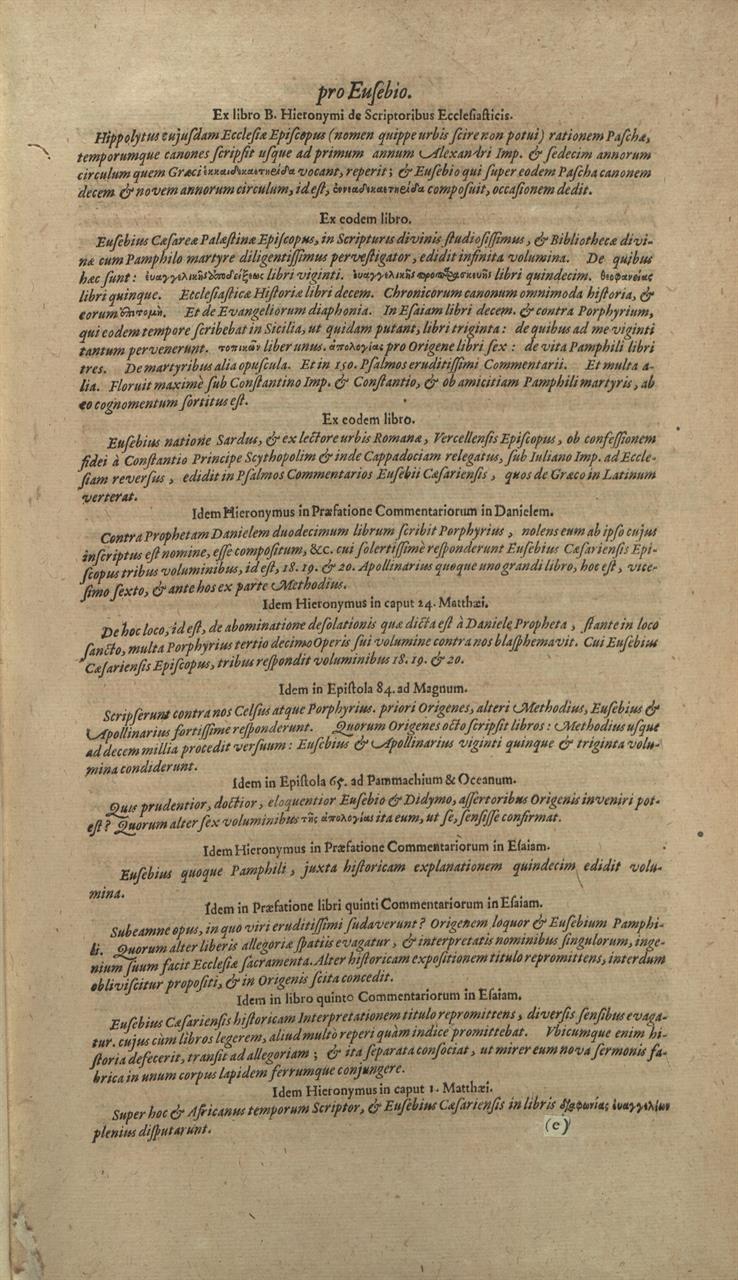 pro Euſebio.
Ex libro B. Hieronymi de Scriptoribus Eccleſiaſticis.
Hippolytus cujuſdam Eccleſiæ Epiſcopus (nomen quippe urbis ſcire non potui) rationem Paſchæ,
temporumque canones ſcripſit uſque ad primum annum Alexandri Imp. & ſedecim annorum
circulum quem Græci ἑκκαιδεκαετηρίδα vocant, reperit; & Euſebio qui ſuper eodem Paſcha canonem
decem & novem annorum circulum, id eſt, ἐννιαδεκαετηρίδα compoſuit, occaſionem dedit.
Ex eodem libro.
Euſebius Cæſareæ Palæſtinæ Epiſcopus, in Scripturis divinis ſtudioſiſſimus, & Bibliothecæ divi-
næ cum Pamphilo martyre diligentiſſimus perveſtigator, edidit infinita volumina. De quibus
hæc ſunt: ἐυαγγελικῆς ἀποδείξεως libri viginti. ἐυαγγελικῆς προπαρασκευῆς libri quindecim. θεοφανείας
libri quinque. Eccleſiaſticæ Hiſtoriæ libri decem. Chronicorum canonum omnimoda hiſtoria, &
eorum ἐπιτομὴ. Et de Evangeliorum diaphonia. In Eſaiam libri decem. & contra Porphyrium,
qui eodem tempore ſcribebat in Sicilia, ut quidam putant, libri triginta: de quibus ad me viginti
tantum pervenerunt. τοπικῶν liber unus. ἀπολογίας pro Origene libri ſex: de vita Pamphili libri
tres. De martyribus alia opuſcula. Et in 150. Pſalmos eruditiſſimi Commentarii. Et multa a-
lia. Floruit maximè ſub Conſtantino Imp. & Conſtantio, & ob amicitiam Pamphili martyris, ab
eo cognomentum ſortitus eſt.
Ex eodem libro.
Euſebius natione Sardus, & ex lectore urbis Romanæ, Vercellenſis Epiſcopus, ob confeſſionem
fidei à Conſtantio Principe Scythopolim & inde Cappadociam relegatus, ſub Iuliano Imp. ad Eccle-
ſiam reverſus, edidit in Pſalmos Commentarios Euſebii Cæſarienſis, quos de Græco in Latinum
verterat.
Idem Hieronymus in Præfatione Commentariorum in Danielem.
Contra Prophetam Danielem duodecimum librum ſcribit Porphyrius, nolens eum ab ipſo cujus
inſcriptus eſt nomine, eſſe compoſitum, &c. cui ſolertiſſimè reſponderunt Euſebius Cæſarienſis Epi-
ſcopus tribus voluminibus, id eſt, 18. 19. & 20. Apollinarius quoque uno grandi libro, hoc eſt, vice-
ſimo ſexto, & ante hos ex parte Methodius.
Idem Hieronymus in caput 24. Matthæi.
De hoc loco, id eſt, de abominatione deſolationis quæ dicta eſt à Daniele Propheta, ſtante in loco
ſancto, multa Porphyrius tertio decimo Operis ſui volumine contra nos blaſphemavit. Cui Euſebius
Cæſarienſis Epiſcopus, tribus reſpondit voluminibus 18. 19. & 20.
Idem in Epiſtola 84. ad Magnum.
Scripſerunt contra nos Celſus atque Porphyrius. priori Origenes, alteri Methodius, Euſebius &
Apollinarius fortiſſime reſponderunt. Quorum Origenes octo ſcripſit libros: Methodius uſque
ad decem millia procedit verſuum: Euſebius & Apollinarius viginti quinque & triginta volu-
mina condiderunt.
Idem in Epiſtola 65. ad Pammachium & Oceanum.
Quis prudentior, doctior, eloquentior Euſebio & Didymo, aſſertoribus Origenis inveniri pot-
eſt? Quorum alter ſex voluminibus τῆς ἀπολογίας ita eum, ut ſe, ſenſiſſe confirmat.
Idem Hieronymus in Præfatione Commentariorum in Eſaiam.
Euſebius quoque Pamphili, juxta hiſtoricam explanationem quindecim edidit volu-
mina.
Idem in Præfatione libri quinti Commentariorum in Eſaiam.
Subeamne opus, in quo viri eruditiſſimi ſudaverunt? Origenem loquor & Euſebium Pamphi-
li. Quorum alter liberis allegoriæ ſpatiis evagatur, & interpretatis nominibus ſingulorum, inge-
nium ſuum facit Eccleſiæ ſacramenta. Alter hiſtoricam expoſitionem titulo repromittens, interdum
obliviſcitur propoſiti, & in Origenis ſcita concedit.
Idem in libro quinto Commentariorum in Eſaiam.
Euſebius Cæſarienſis hiſtoricam Interpretationem titulo repromittens, diverſis ſenſibus evaga-
tur. cujus cùm libros legerem, aliud multò reperi quàm indice promittebat. Vbicumque enim hi-
ſtoria defecerit, tranſit ad allegoriam; & ita ſeparata conſociat, ut mirer eum nova ſermonis fa-
brica in unum corpus lapidem ferrumque conjungere.
Idem Hieronymus in caput 1. Matthæi.
Super hoc & Africanus temporum Scriptor, & Euſebius Cæſarienſis in libris διαφωνίας ἐυαγγελίων
plenius diſputarunt.
(e)